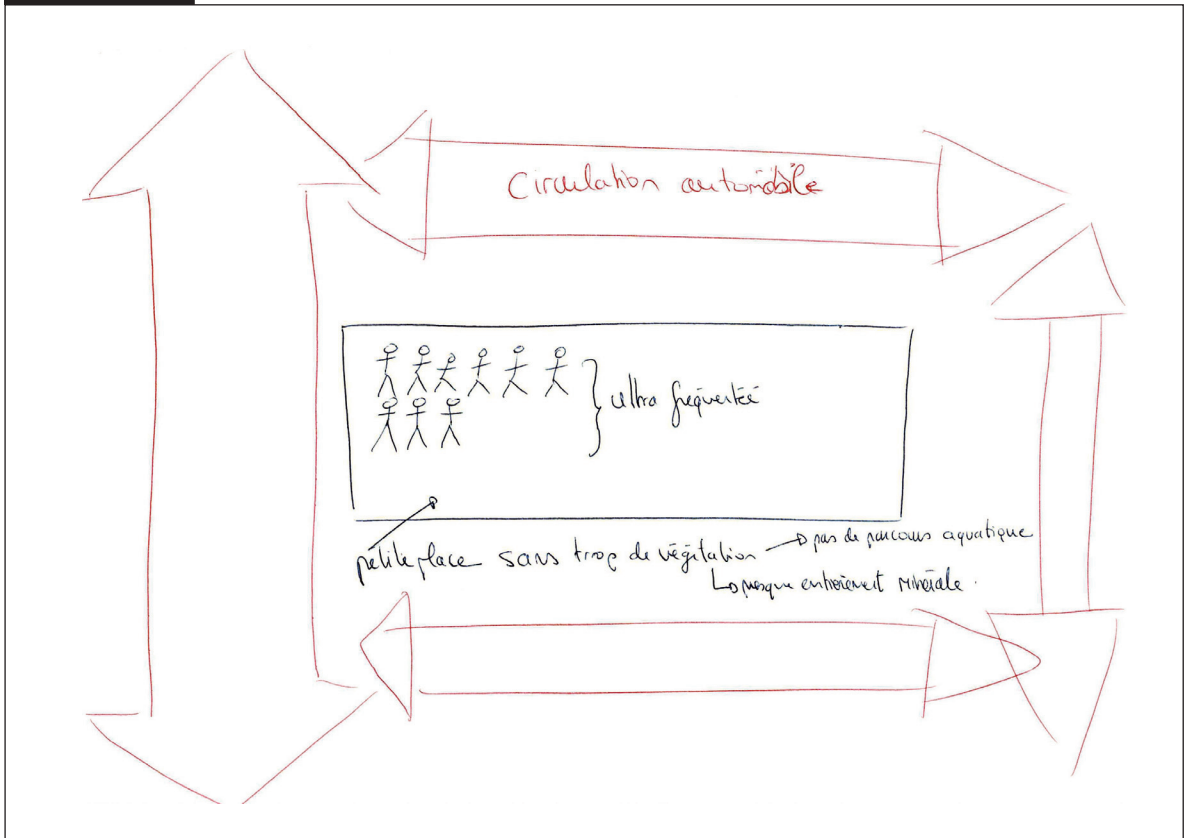 Circulation automobile
ultra fréquentée
petite place sans trop de végétation → pas de parcours aquatique
↳ presque entièrement minérale.